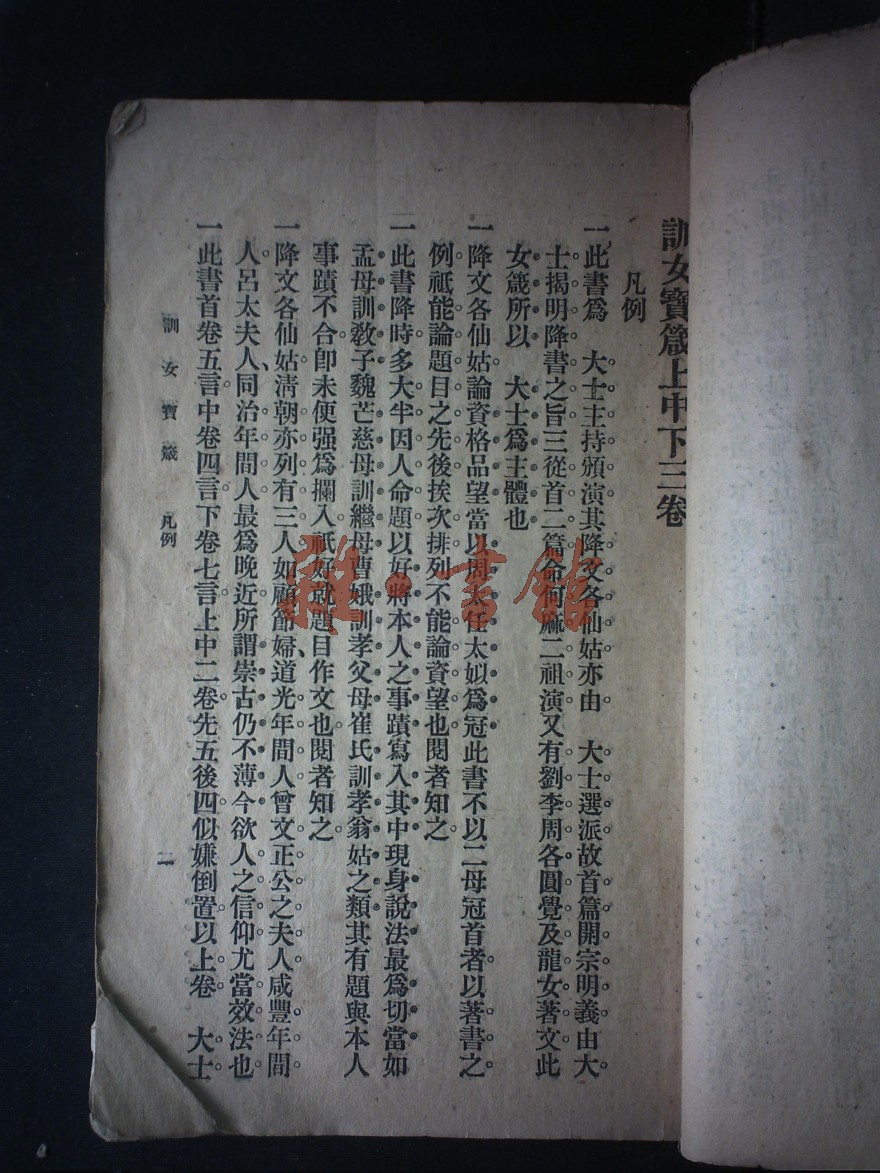 訓女寶箴上中下三卷
凡例
一此書爲　大士主持頒演其降文各仙姑亦由　大士選派故首篇開宗明義由大
士揭明降書之旨三從首二篇命何麻二祖演又有劉李周各圓覺及龍女著文此
女箴所以　大士爲主體也
一降文各仙姑論資格品望當以周太任太姒爲冠此書不以二母冠首者以著書之
例祇能論題目之先後挨次排列不能論資望也閱者知之
一此書降時多大半因人命題以好將本人之事蹟寫入其中現身說法最爲切當如
孟母訓敎子魏芒慈母訓繼母曹娥訓孝父母崔氏訓孝翁姑之類其有題與本人
事蹟不合卽未便强爲攔入祇好就題目作文也閱者知之
一降文各仙姑淸朝亦列有三人如顧節婦、道光年間人曾文正公之夫人咸豐年間
人呂太夫人、同治年間人最爲晚近所謂崇古仍不薄今欲人之信仰尤當效法也
一此書首卷五言中卷四言下卷七言上中二卷先五後四似嫌倒置以上卷　大士
訓女寶箴　凡例
二
雜·書館